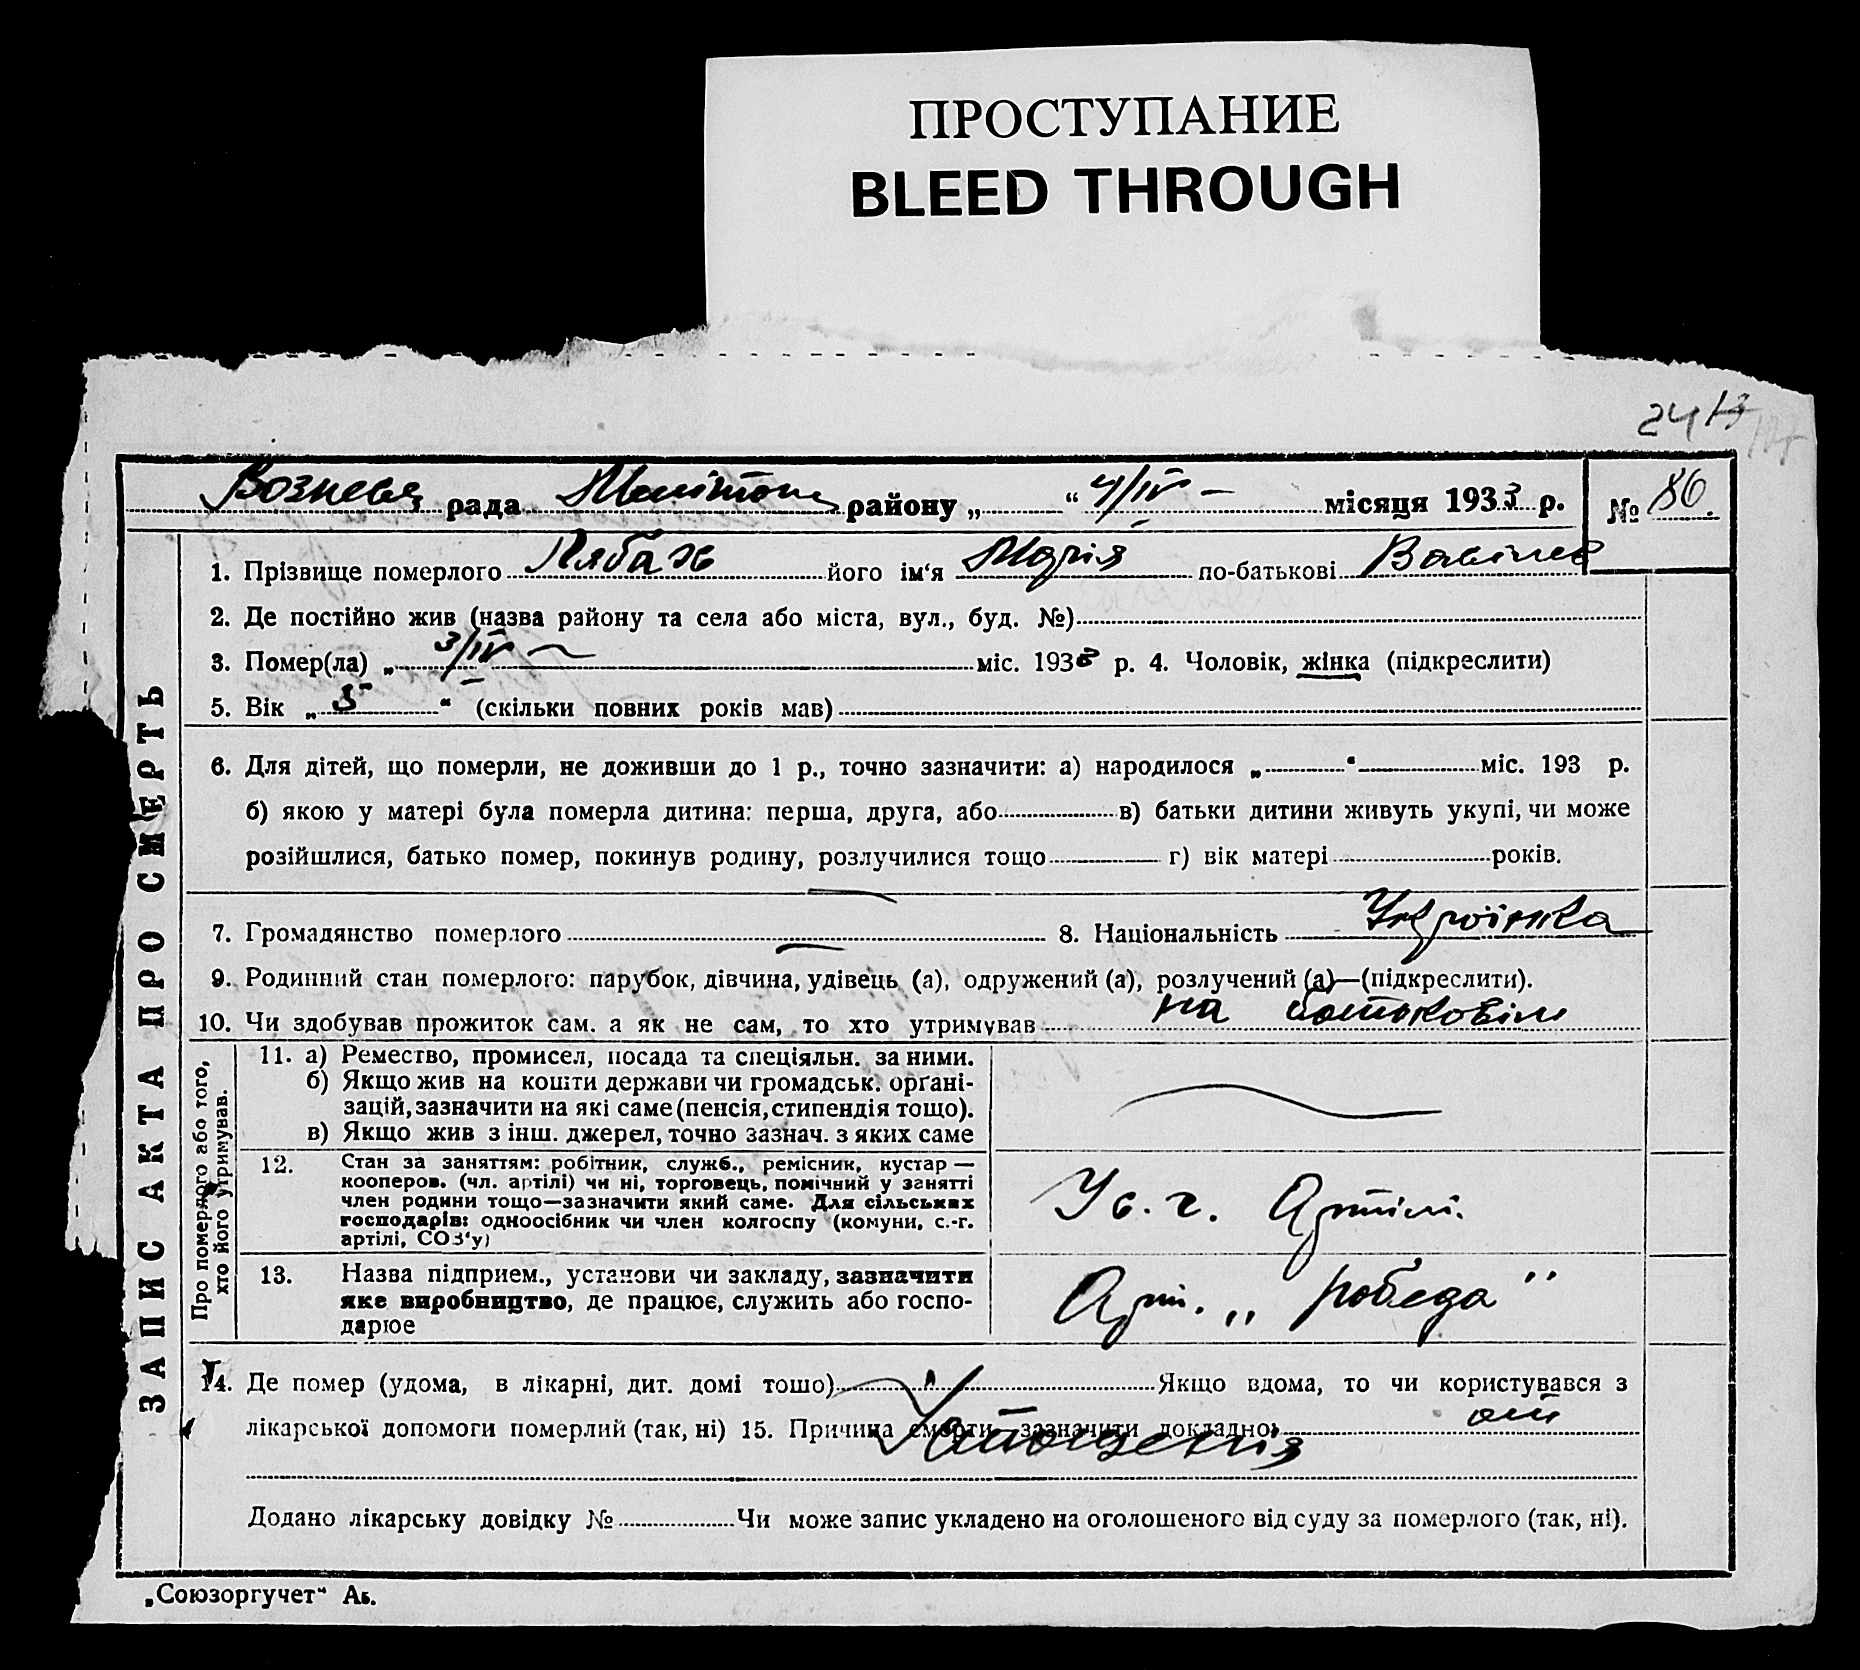 ПРОСТУПАНИЕ
BLEED THROUGH
24
рада Мелітоп району „ “ 4/IV – місяця 1933 р. № 86.
1. Прізвище померлого його ім‘я Марія по-батькові
2. Де постійно жив (назва району та села або міста, вул., буд. №)
3. Помер(ла) „ 3/IV міс. 1933 р. 4. Чоловік, жінка (підкреслити)
5. Вік „ 5 “ (скільки повних років мав)
6. Для дітей, що померли, не доживши до 1 р., точно зазначити: а) народилося „ “ міс. 193 р.
б) якою у матері була померла дитина: перша, друга, або в) батьки дитини живуть укупі, чи може
розійшлися, батько помер, покинув родину, розлучилися тощо г) вік матері років.
7. Громадянство померлого 8. Національність Українка
9. Родинний стан померлого: парубок, дівчина, удівець (а), одружений (а), розлучений (а)—(підкреслити).
10. Чи здобував прожиток сам. а як не сам, то хто утримував на
ЗАПИС АКТА ПРО СМЕРТЬ
Про померлого або того,
хто його утримував.
11. а) Ремество, промисел, посада та спеціяльн. за ними.
б) Якщо жив на кошти держави чи громадськ. орґані-
зацій, зазначити на які саме (пенсія, стипендія тощо).
в) Якщо жив з інш. джерел, точно зазнач. з яких саме
12. Стан за заняттям: робітник, служб., ремісник, кустар —
кооперов. (чл. артілі) чи ні, торговець, помічний у занятті
член родини тощо—зазначити який саме. Для сільських
господарів: одноосібник чи член колгоспу (комуни, с.-г.
артілі, СОЗ‘у)
Ч. с. г. Артілі.
13. Назва підприєм., установи чи закладу, зазначити
яке виробництво, де працює, служить або госпо-
дарює
Арт. „ Победа "
14. Де помер (удома, в лікарні, дит. домі тошо) Якщо вдома, то чи користувався з
лікарської допомоги померлий (так, ні) 15. Причина смерти зазначити докладно: от
истощения
Додано лікарську довідку № Чи може запис укладено на оголошеного від суду за померлого (так, ні).
„Союзоргучет“ Аь.